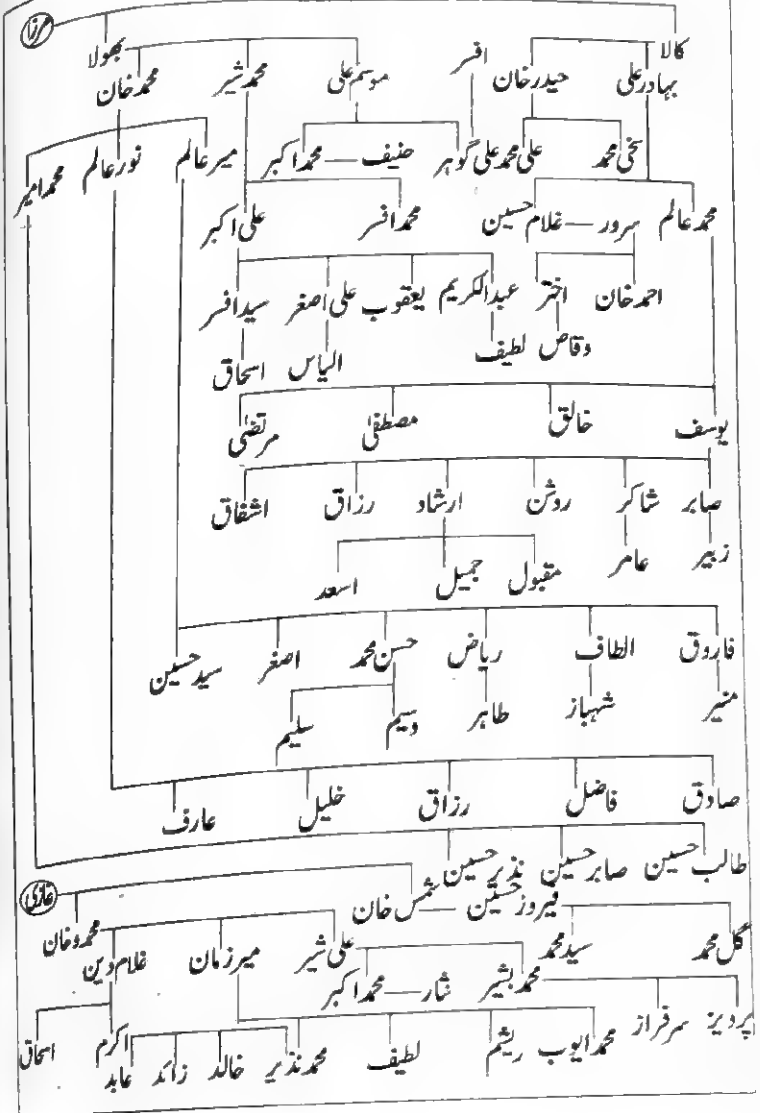 مرزا
کالا
بھولا
بہادر علی
حیدر خان
افسر
موسم علی
محمد شیر
محمد خان
سخی محمد
علی محمد
علی گوہر
حنیف
محمد اکبر
میر عالم
نور عالم
محمد امیر
محمد عالم
سرور
غلام حسین
محمد افسر
علی اکبر
احمد خان
اختر
عبدالکریم
یعقوب
علی اصغر
سید افسر
وقاص
لطیف
الیاس
اسحاق
یوسف
خالق
مصطفیٰ
مرتضیٰ
صابر
شاکر
روشن
ارشاد
رزاق
اشفاق
زبیر
عامر
مقبول
جمیل
اسعد
فاروق
الطاف
ریاض
حسن محمد
اصغر
سید حسین
منیر
شہباز
طاہر
وسیم
سلیم
صادق
فاضل
رزاق
خلیل
عارف
طالب حسین
صابر حسین
نذیر حسین
غازی
فیروز حسین
شمس خان
محمود خان
گل محمد
سید محمد
علی شیر
میر زمان
غلام دین
محمد بشیر
نثار
محمد اکبر
پرویز
سرفراز
محمد ایوب
ریشم
لطیف
محمد نذیر
خالد
زائد
عابد
اکرم
اسحاق